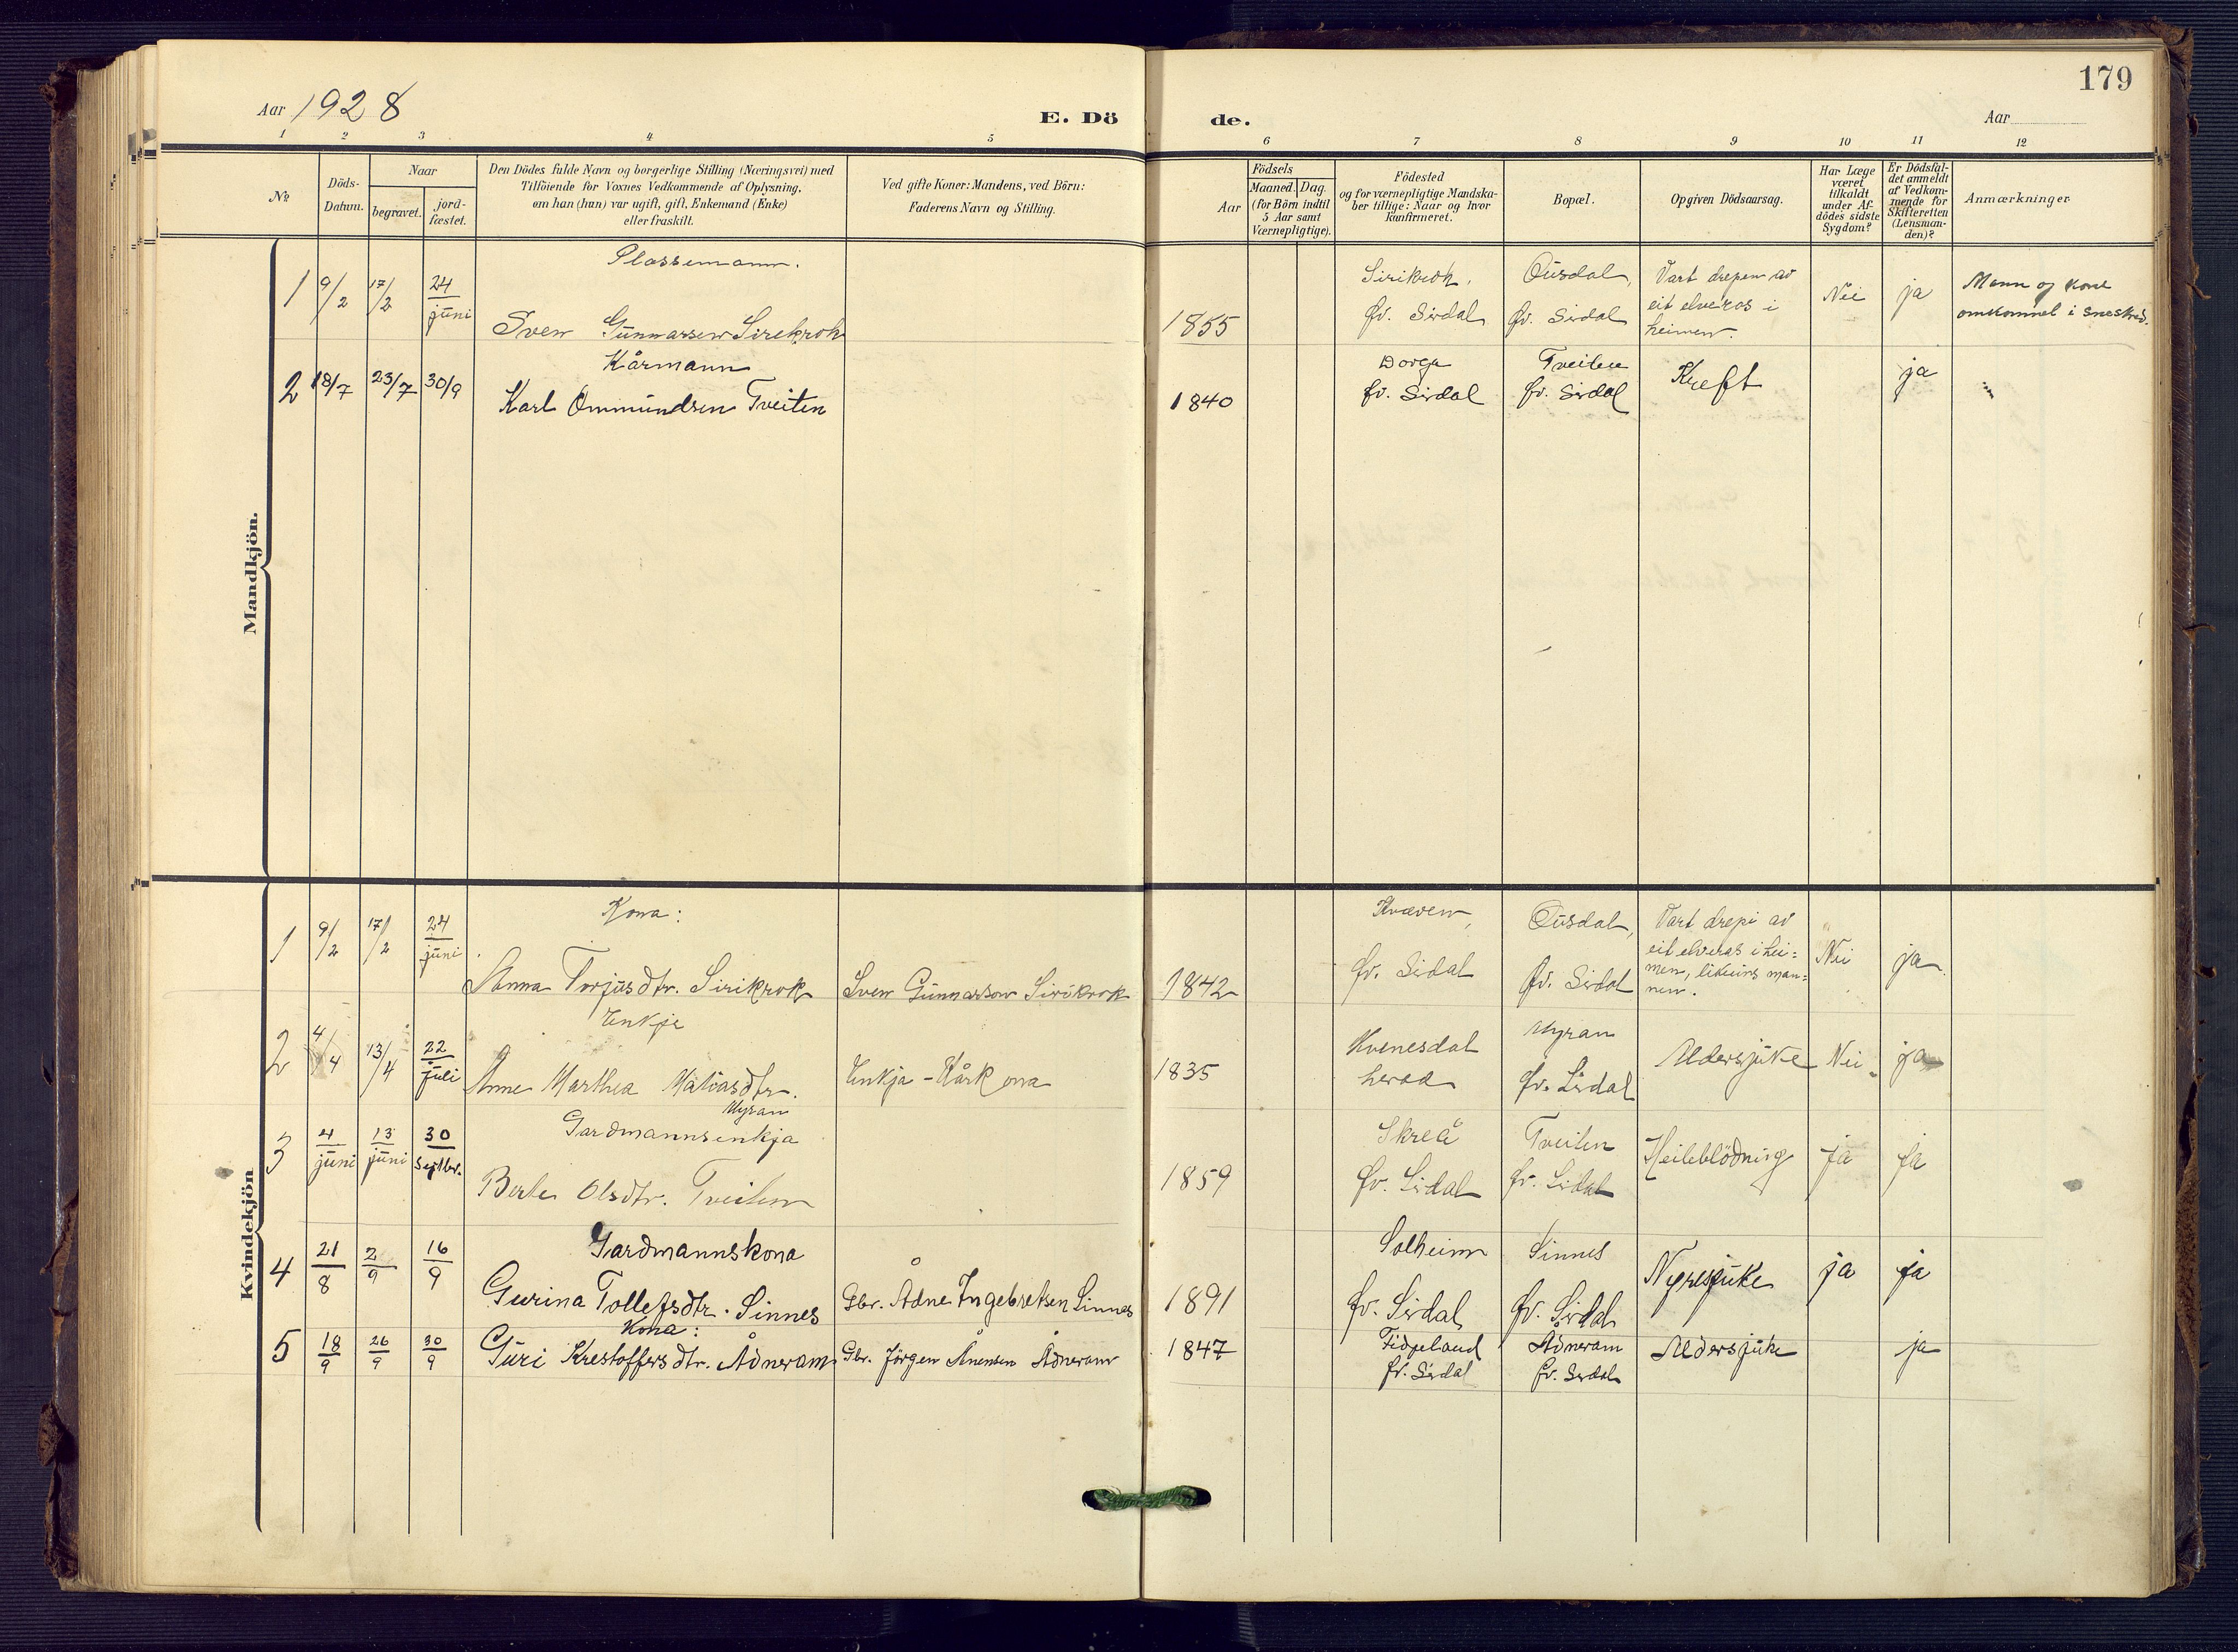 179
Aar 1928
E. Dö
de.
Aar
1 2 3 4 5
6 7 8 9 10 11 12
Nr.
Döds-
Datum.
Naar
begravet.
jord-
fæstet.
Den Dödes fulde Navn og borgerlige Stilling (Næringsvei) med
Tilföiende for Voxnes Vedkommende af Oplysning,
om han (hun) var ugift, gift, Enkemand (Enke)
eller fraskilt.
Ved gifte Koner: Mandens, ved Börn:
Faderens Navn og Stilling.
Födsels
Aar
Maaned.
Dag.
(for Börn indtil
5 Aar samt
Værnepligtige).
Födested
og for værnepligtige Mandska-
ber tillige: Naar og hvor
konfirmeret.
Bopæl.
Opgiven Dödsaarsag.
Har Læge
været
tilkaldt
under Af-
dödes sidste
Sygdom?
Er Dödsfal-
det anmeldt
af Vedkom-
mende for
Skifteretten
(Lensman-
den)?
Anmærkninger
Mandkjön.
Plassemann.
1 9/2 17/2 24 juni
Sven Gunnarsen Sirekrok
1855
Sirikrok,
Øv. Sirdal
Ousdal,
Øv. Sirdal
Vart drepen av
eit elveras i
heimen.
Nei
ja
Mann og kone
omkommet i sneskred.
Kårmann
2 18/7 23/7 30/9
Karl Ommundsen Tveiten
1840
Dorga
Øv. Sirdal
Tveiten
Øv. Sirdal
Kreft
ja
Kvindekjön
Kona:
1 9/2 17/2 24 juni
Anna Torjusdtr. Sirikrok
Sven Gunnarson Sirikrok
1842
Kvæven,
Øv. Sidal
Ousdal,
Øv. Sirdal
Vart drepi av
eit elveras i hei-
men, likeins man-
nen.
Nei
ja
Enkje
2 4/4 13/4 22 juli
Anne Marthea Matiasdtr.
Myran
Enkja - Kårkona
1835
Kvinesdal
herad
Myran
Øv. Sirdal
Aldersjuke
Nei
ja
Gardmannsenkja
3 4 juni 13 juni 30 Septbr.
Berte Olsdtr. Tveiten
1859
Skreå
Øv. Sirdal
Tveiten
Øv. Sirdal
Heileblödning
ja
ja
Gardmannskona
4 21/8 2/9 16/9
Gurina Tollefsdtr. Sinnes
Gbr. Ådne Ingebretsen Sinnes
1891
Solheim
Øv. Sirdal
Sinnes
Øv. Sirdal
Nyresjuke
ja
ja
Kona:
5 18/9 26/9 30/9
Guri Krestoffersdtr. Ådneram
Gbr. Jörgen Ånensen Ådneram
1847
Fidjeland
Øv. Sirdal
Ådneram
Øv. Sirdal
Aldersjuke
ja